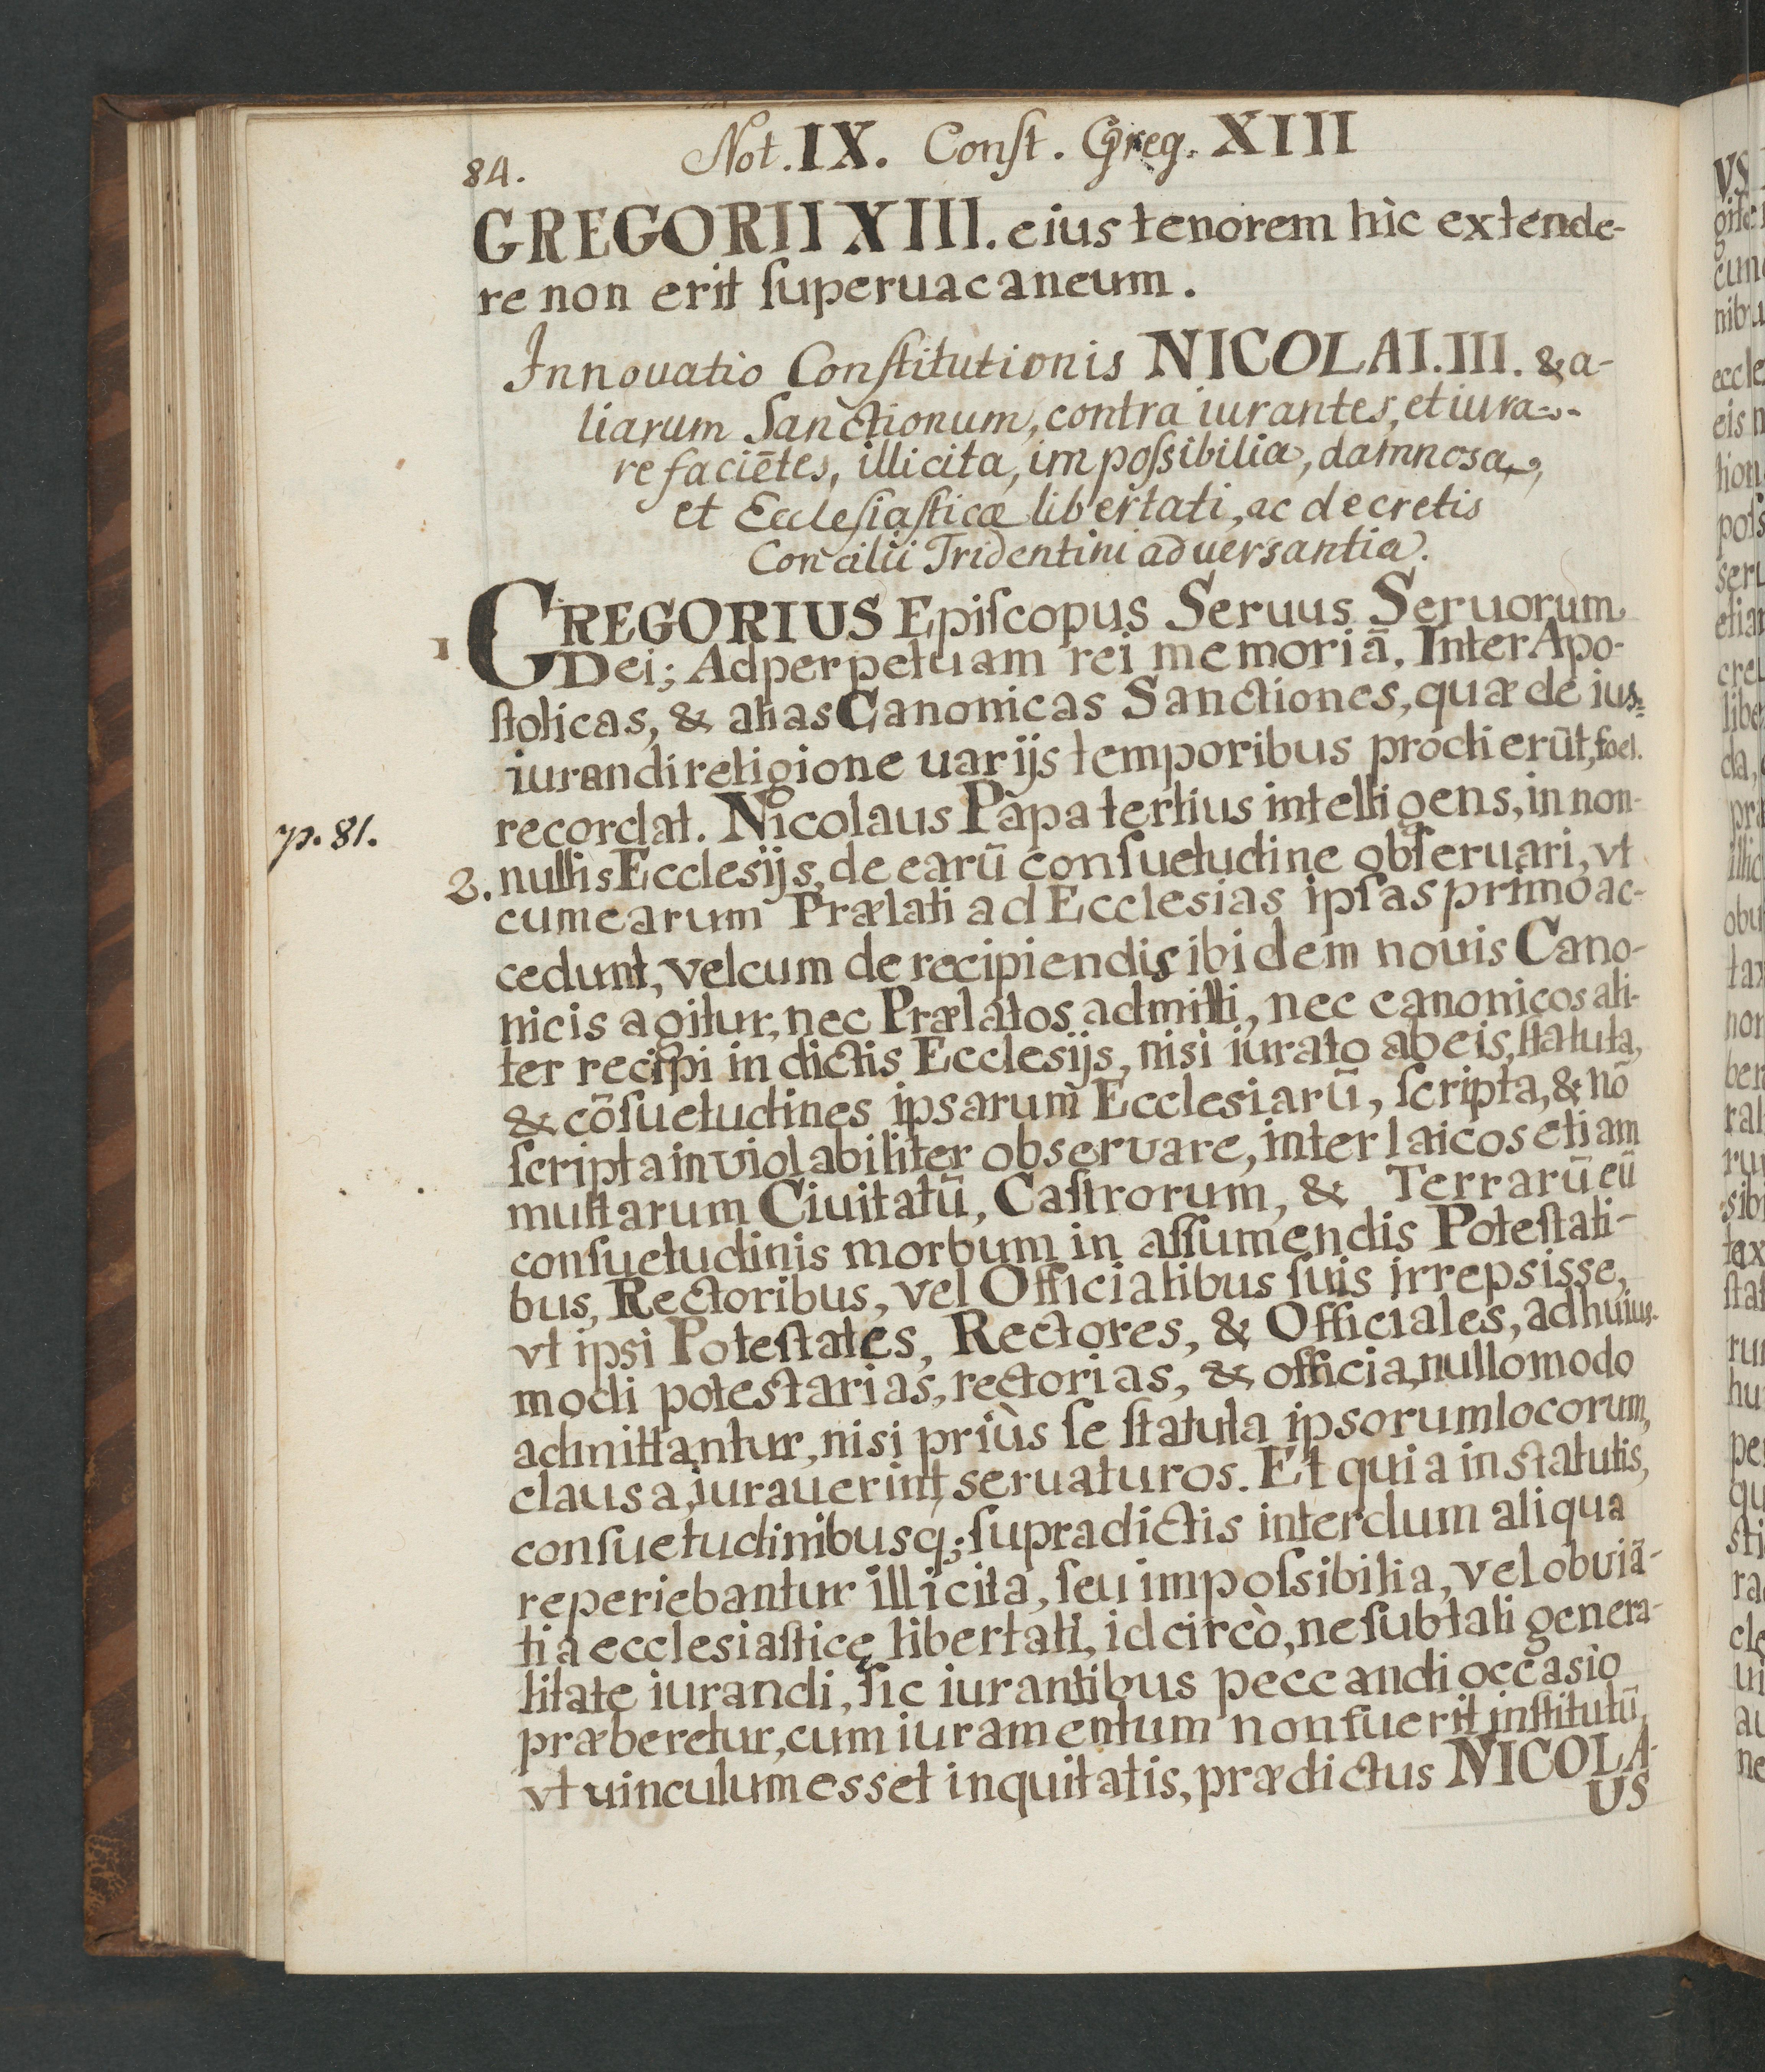 84.
Not. IX. Conſt. Greg. XIII
GREGORII XIII. eius tenorem hìc extende-
re non erit ſuperuacaneum.
Innouatio Conſtitutionis NICOLAI. III. & a-
liarum Sanctionum, contra iurantes, et iura-
re faciētes, illicita, impoſsibilia, damnosa,
et Eccleſiaſticæ libertati, ac decretis
Concilii Tridentini aduersantia.
1 GREGORIUS Epiſcopus Seruus Seruorum
Dei; Ad perpetuam rei memoriā. Inter Apo-
ſtolicas, & alias Canonicas Sanctiones, quæ de ius-
iurandi religione uarijs temporibus prodierūt, foel.
recordat. Nicolaus Papa tertius intelligens, in non-
p. 81.
2. nullis Ecclesijs, de earū conſuetudine obſeruari, vt
cum earum Prælati ad Ecclesias ipſas primo ac-
cedunt, vel cum de recipiendis ibidem nouis Cano-
nicis agitur, nec Prælatos admitti, nec canonicos ali-
ter recipi in dictis Ecclesijs, nisi iurato ab eis, ſtatuta,
& cōſuetudines ipsarum Ecclesiarū, ſcripta, & nō
ſcripta inviolabiliter observare, inter laicos etiam
multarum Ciuitatū, Caſtrorum, & Terrarū eū
conſuetudinis morbum in aſſumendis Poteſtati-
bus, Rectoribus, vel Officialibus ſuis irrepsisse,
vt ipsi Poteſtates, Rectores, & Officiales, ad huius-
modi potestarias, rectorias, & officia, nullo modo
admittantur, nisi priùs ſe ſtatuta ipsorum locorum,
clausa, iurauerint, seruaturos. Et quia in statutis,
conſuetudinibusq; ſupradictis interdum aliqua
reperiebantur illicita, ſeu impoſsibilia, vel obuiā-
tia ecclesiaſticę libertati, idcircò, ne ſub tali genera-
litate iurandi, ſic iurantibus peccandi occasio
præberetur, cum iuramentum non fuerit inſtitutū,
vt uinculum esset inquitatis, prædictus NICOLA-
US